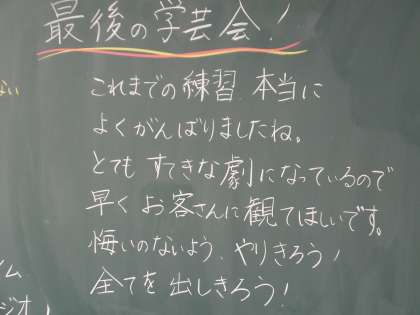 最後の学芸会!
ない
これまでの練習 本当に
よくがんばりましたね。
とても すてきな劇になっているので
早く お客さんに観てほしいです。
悔いのないよう、やりきろう!
全てを 出しきろう!
イム
ジオ!